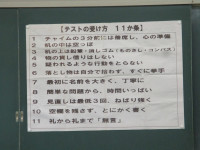 【テストの受け方 11か条】
1 チャイムの3分前には着席し、心の準備
2 机の中は空っぽ
3 机の上は鉛筆・消しゴム(ものさし・コンパス)
4 物の貸し借りはしない
5 疑われるような行動をとらない
6 落とし物は自分で拾わず、すぐに挙手
7 最初に名前を大きく、丁寧に
8 簡単な問題から、時間いっぱい
9 見直しは最低3回、ねばり強く
10 空欄を残さず、とにかく書く
11 礼から礼まで「無言」